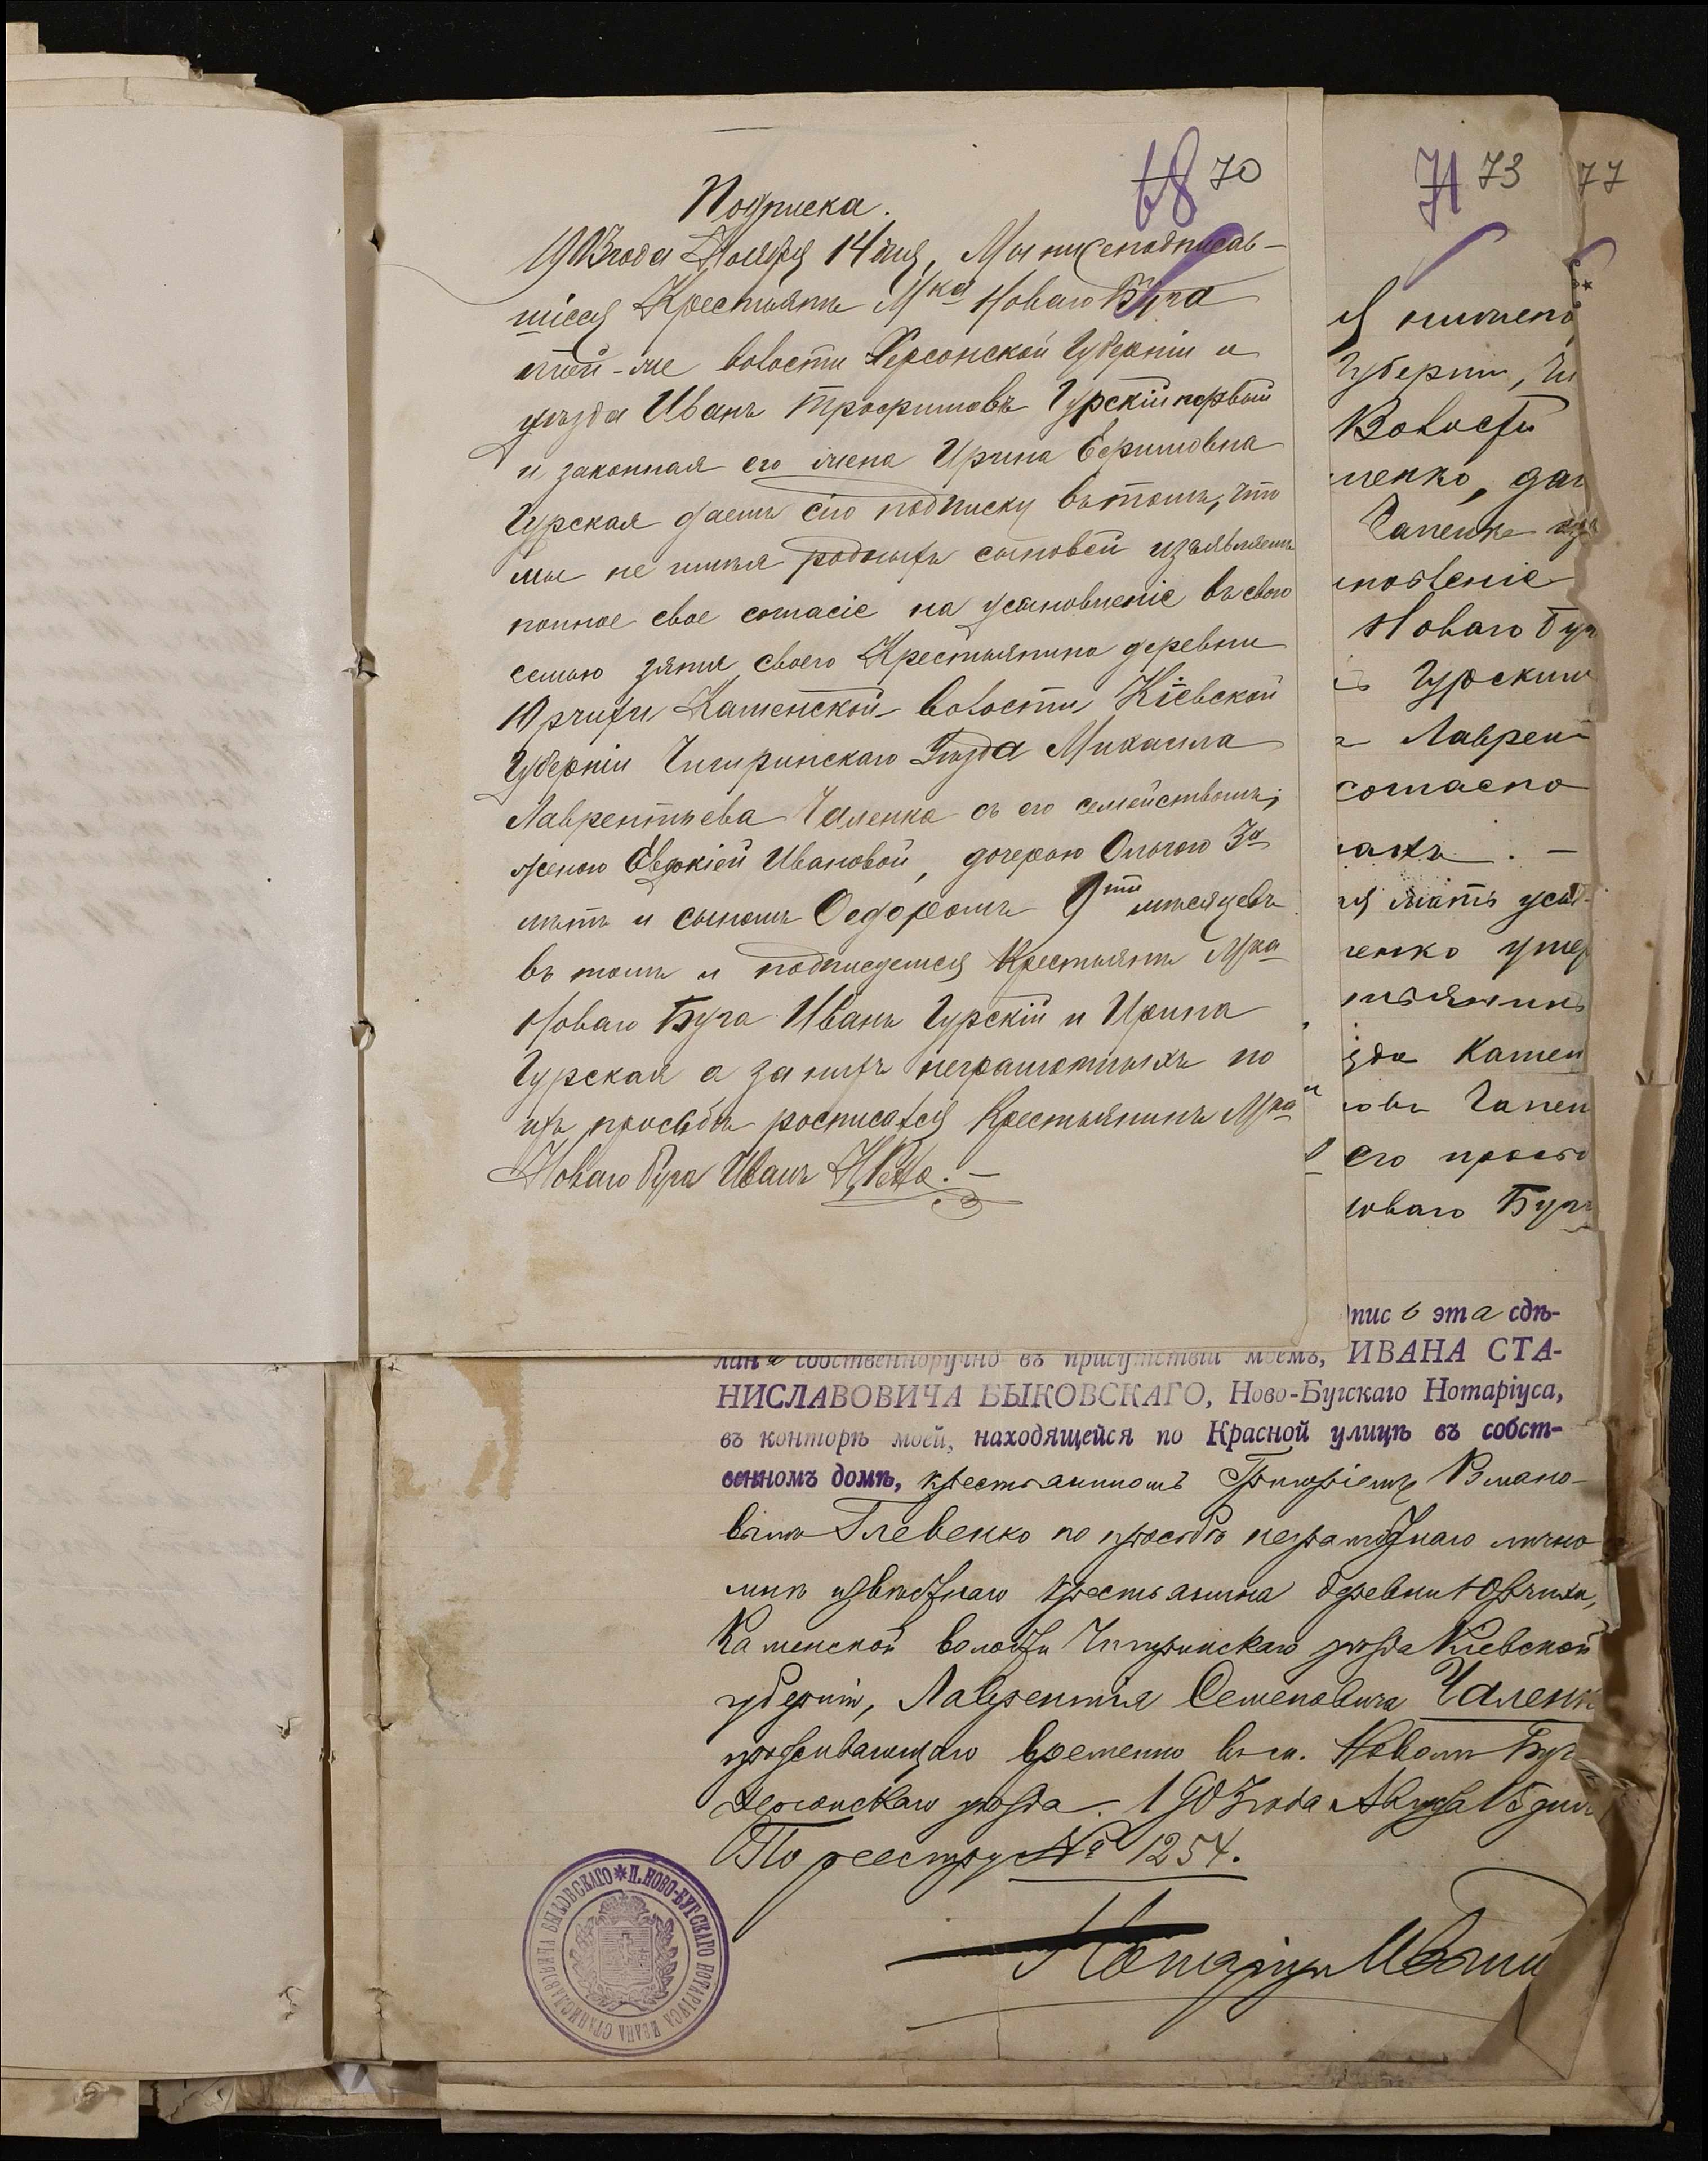 68 70
Подписка.
1903 года Ноября 14 дня, Мы нижеподписав-
шіеся Крестьяне М-ка Новаго Буга
той-же волости Херсонской Губерніи и
уезда Иванъ Трофимовъ Гурскій первый
и законная его жена Ирина Ефимовна
Гурская даемъ сію подписку въ томъ, что
мы не имея родныхъ сыновей изъявляемъ
полное свое согласіе на усыновленіе въ свою
семью зятя своего Крестьянина деревни
Юрчихи Каменской волости Кіевской
Губерніи Чигиринскаго Уезда Михаила
Лаврентьева Чаленка съ его семействомъ;
женою Евдокіей Ивановой, дочерью Ольгою 3х
летъ и сыномъ Федоромъ 9ти месяцевъ
въ томъ и подписуемся Крестьяне М-ка
Новаго Буга Иванъ Гурскій и Ирина
Гурская а за нихъ неграмотныхъ по
ихъ просьбе росписался Крестьянинъ М-ка
Новаго Буга Иванъ
71 73
Я нижепо
Губерніи, Чи
Волости
ленко, даю
Чаленко
новленіе
Новаго Буг
Гурским
Лаврен
согласно
.–
ленко
зда Камен
овъ Чален
его просьб
Новаго Буга
77
пись эта сдѣ-
лана собственноручно въ присутствіи моемъ, ИВАНА СТА-
НИСЛАВОВИЧА БЫКОВСКАГО, Ново-Бугскаго Нотаріуса,
въ конторѣ моей, находящейся по Красной улицѣ въ собст-
венномъ домѣ, крестьяниномъ Григоріемъ Власо-
вымъ Глевенко по просьбѣ неграмотнаго лично
мнѣ извѣстнаго крестьянина деревни Юрчихи,
Каменской волости Чигиринскаго уѣзда Кіевской
губерніи, Лаврентія Семеновича Чаленк
проживающаго временно въ м. Новомъ Буг
Херсонскаго уѣзда. 1903 года
По реестру № 1254.
Нотаріусъ
* П. НОВО-БУГСКАГО НОТАРІУСА ИВАНА СТАНИСЛАВОВИЧА БЫКОВСКАГО